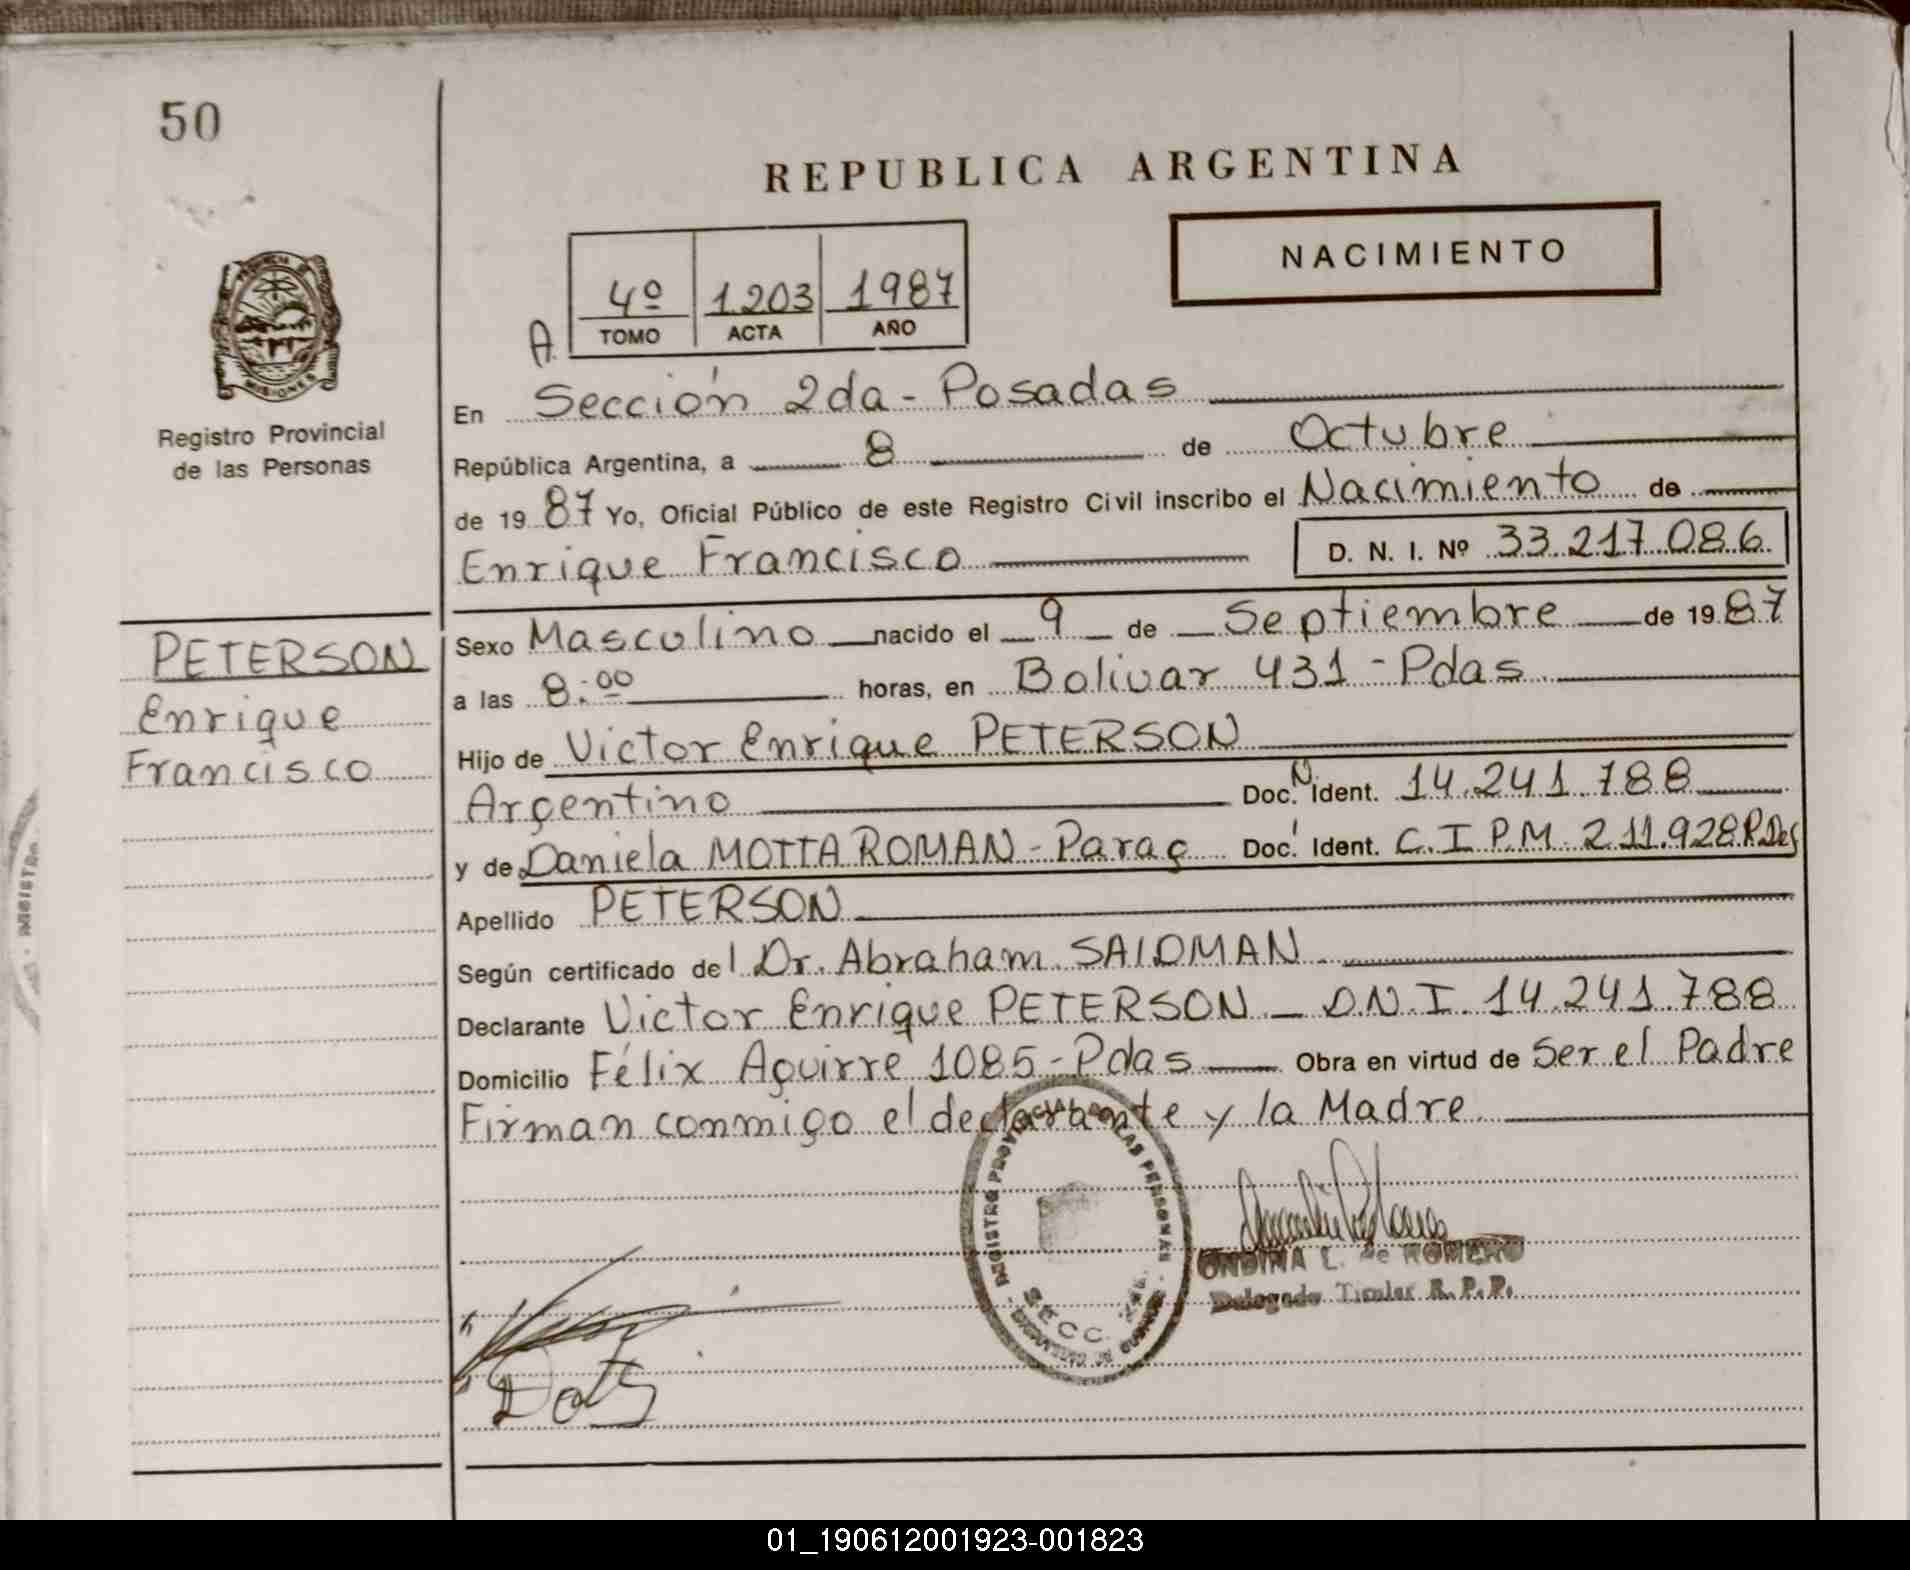 50
REPUBLICA ARGENTINA
NACIMIENTO
4º 1.203 1987
TOMO ACTA AÑO
A.
PROVINCIA DE
MISIONES
Registro Provincial
de las Personas
En Sección 2da - Posadas
República Argentina, a 8 de Octubre
de 19 87 Yo, Oficial Público de este Registro Civil inscribo el Nacimiento de
Enrique Francisco D. N. I. Nº 33.217.086
PETERSON
Enrique
Francisco
Sexo Masculino nacido el 9 de Septiembre de 19 87
a las 8:00 horas, en Bolivar 431 - Pdas
Hijo de Victor Enrique PETERSON
Argentino Doc. N Ident. 14.241.788
y de Daniela MOTTA ROMAN - Parag Doc. Ident. C.I.P.M. 211.928
Apellido PETERSON
Según certificado del Dr. Abraham SAIDMAN
Declarante Victor Enrique PETERSON - D.N.I. 14.241.788
Domicilio Félix Aguirre 1085 - Pdas Obra en virtud de Ser el Padre
Firman conmigo el declarante y la Madre
REGISTRO PROVINCIAL DE LAS PERSONAS
SECC. 2da.
ONDINA L. de ROMERO
Delegado Titular R. P. P.
01_190612001923-001823